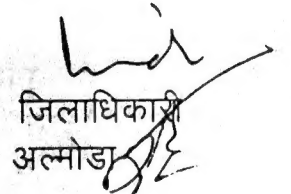 जिलाधिकारी
अल्मोडा